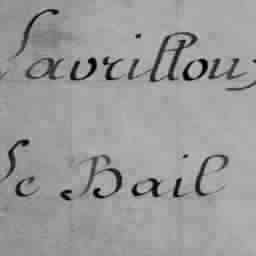 Lavrilloux
Le Bail